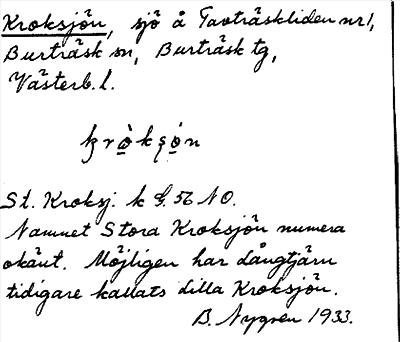 Kroksjön, sjö å Taxträskliden nr 1,
Burträsk sn, Burträsk tg,
Västerb. l.
kròksọ̈n
St. Kroksj. k G. 56 NO.
Namnet Stora Kroksjön numera
okänt. Möjligen har Långtjärn
tidigare kallats Lilla Kroksjön.
B. Nygren 1933.